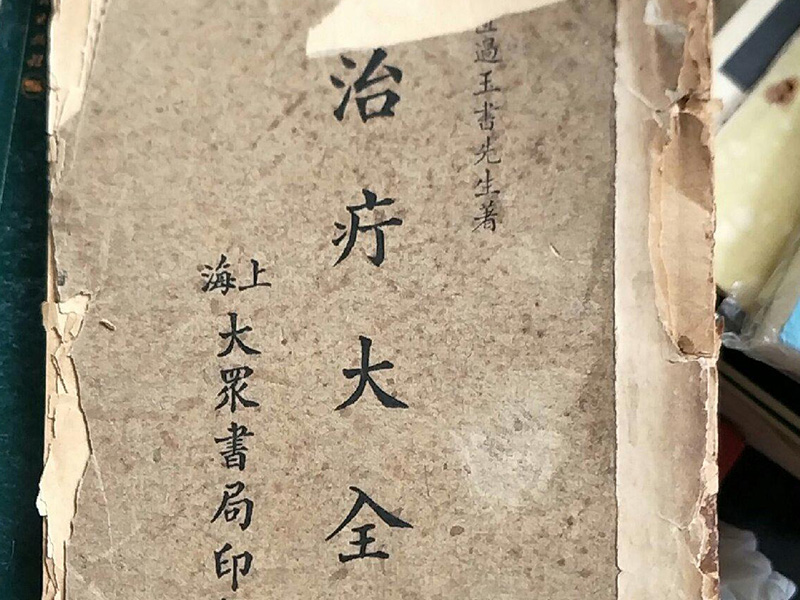 過玉書先生著
治疔大全
上海
大眾書局印